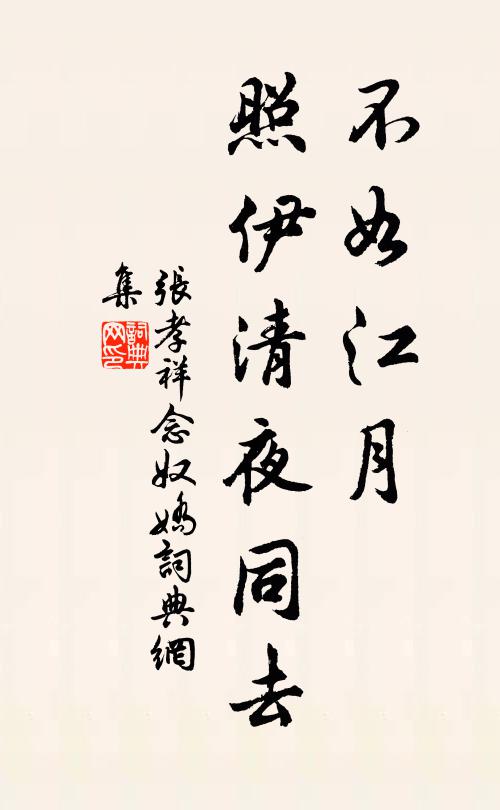 不如江月
照伊清夜同去
張孝祥念奴嬌詞典網
集
詞典
网印